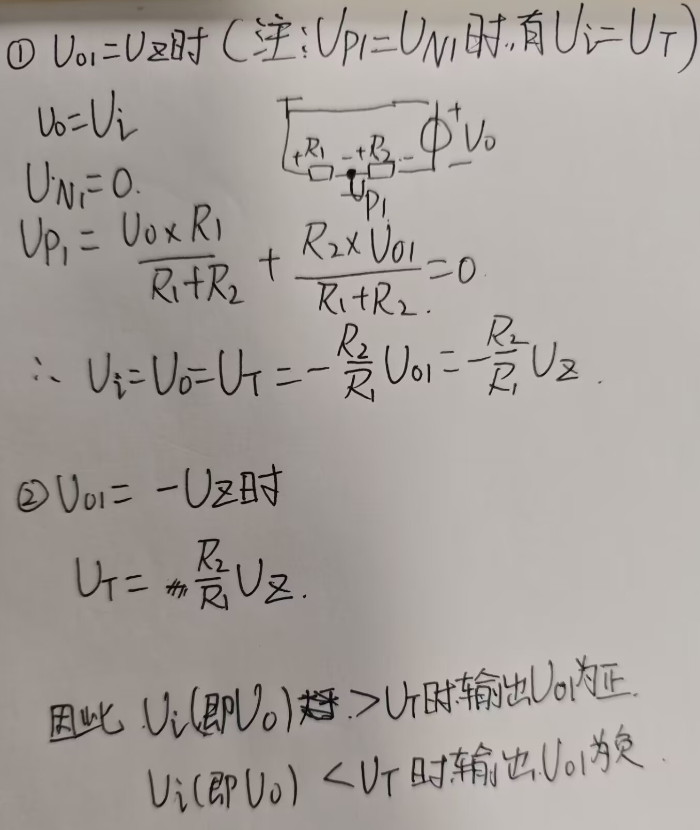 ① U01=UZ时 (注:UP1=UN1时,有Ui=UT)
U0=Ui
+R1 - +R2 - + U0 -
UP1
UN1=0.
UP1 = U0×R1/R1+R2 + R2×U01/R1+R2. =0.
∴ Ui=U0=UT=-R2/R1 U01=-R2/R1 UZ.
② U01= -UZ时
UT= R2/R1 UZ.
因此 Ui(即U0) >UT时输出U01为正.
Ui(即U0) <UT时输出U01为负.